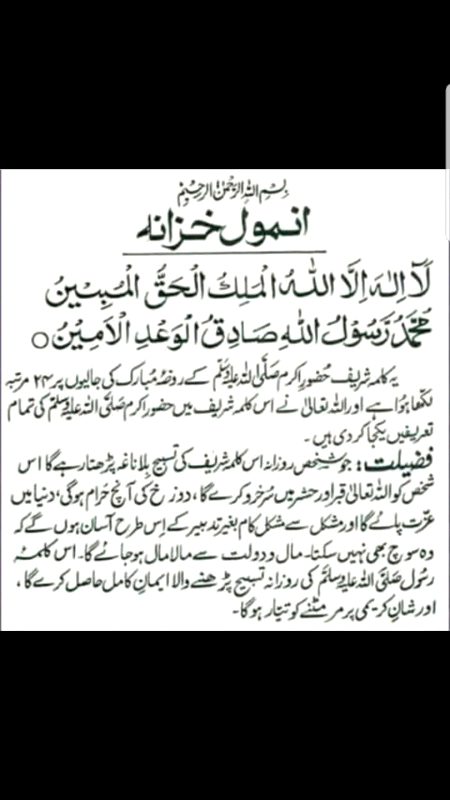 بِسْمِ اللهِ الرَّحْمٰنِ الرَّحِيْمِ
انمول خزانہ
لَآ اِلٰهَ اِلَّا اللهُ الْمَلِكُ الْحَقُّ الْمُبِيْنُ
مُحَمَّدٌ رَّسُوْلُ اللهِ صَادِقُ الْوَعْدِ الْاَمِيْنُ ○
یہ کلمہ شریف حُضور اکرم صَلَّی اللہُ عَلَیْہِ وَسَلَّم کے روضۂ مبارک کی جالیوں پر ۲۴ مرتبہ
لکھا ہوا ہے اور اللہ تعالیٰ نے اس کلمہ شریف میں حضور اکرم صَلَّی اللہُ عَلَیْہِ وَسَلَّم کی تمام
تعریفیں یکجا کر دی ہیں ۔
فضیلت: جو شخص روزانہ اس کلمہ شریف کی تسبیح بلا ناغہ پڑھتا رہے گا اس
شخص کو اللہ تعالیٰ قبر اور حشر میں سُرخرو کرے گا، دوزخ کی آنچ حَرام ہوگی، دنیا میں
عزّت پائے گا اور مشکل سے مشکل کام بغیر تدبیر کے اِس طرح آسان ہوں گے کہ
وہ سوچ بھی نہیں سکتا۔ مال و دولت سے مالا مال ہو جائے گا۔ اس کلمۂ
رسول صَلَّی اللہُ عَلَیْہِ وَسَلَّم کی روزانہ تسبیح پڑھنے والا ایمانِ کامل حاصل کرے گا،
اور شانِ کریمی پر مر مٹنے کو تیّار ہوگا۔